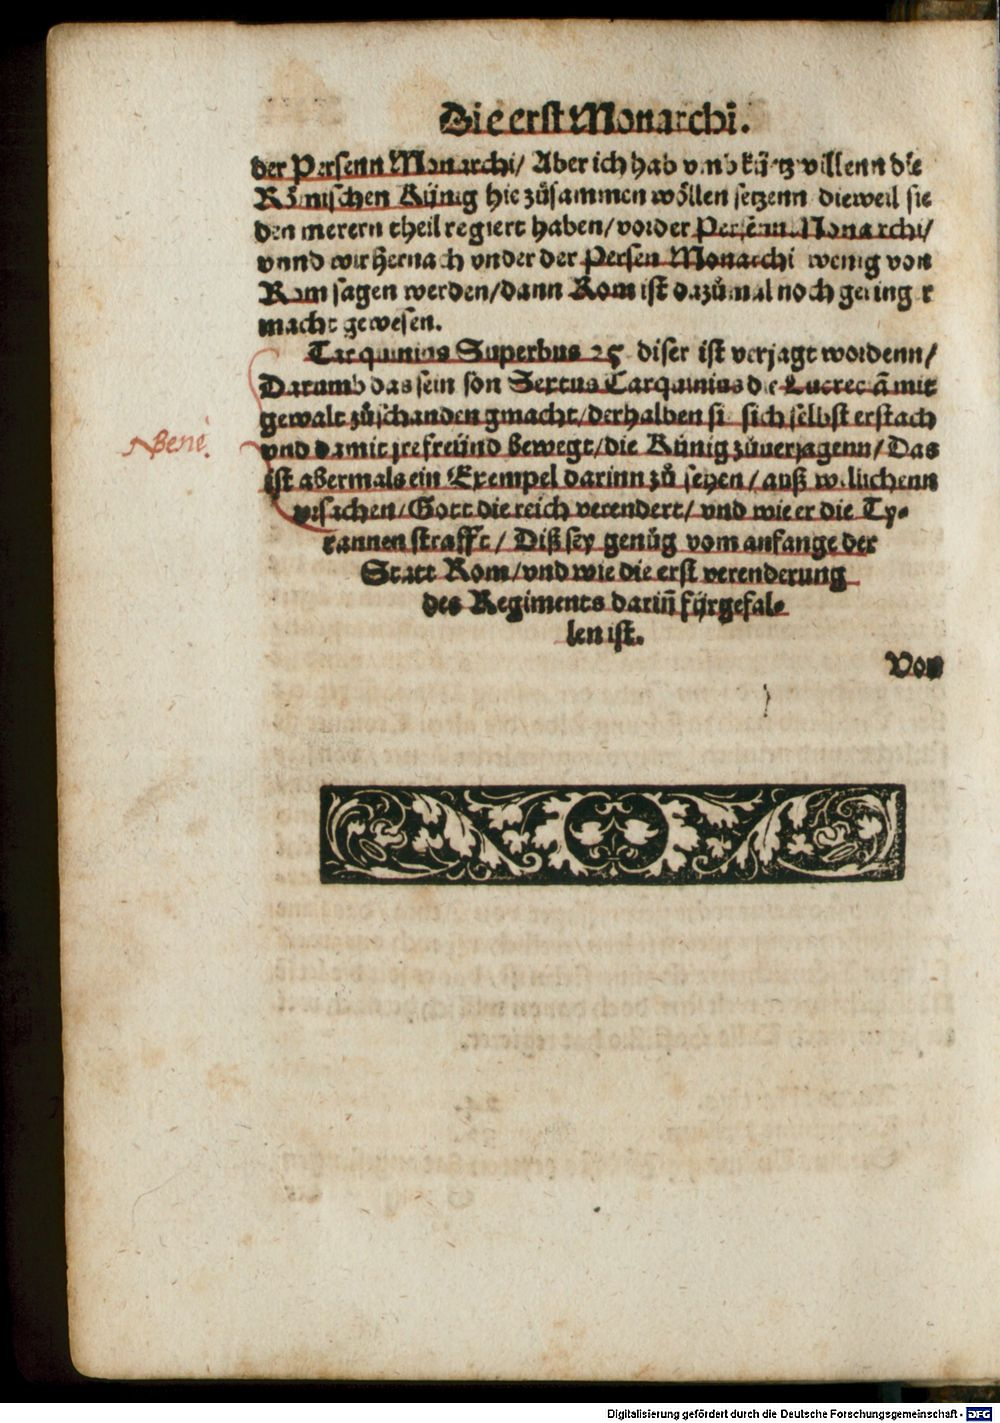 Die erst Monarchi.
der Persenn Monarchi/ Aber ich hab vmb kürtz willenn die
Römischen Künig hie zůsammen wöllen setzenn dieweil sie
den merern theil regiert haben/ vor der Persenn Monarchi/
vnnd wir hernach vnder der Persen Monarchi wenig von
Rom sagen werden/ dann Rom ist dazůmal noch geringer
macht gewesen.
Tarquinius Superbus 25 diser ist verjagt wordenn/
Darumb das sein son Sextus Tarquinius die Lucreciā mit
gewalt zů schanden gmacht/ derhalben sie sich selbst erstach
Bene.
vnd damit jre freünd bewegt/ die Künig zůuerjagenn/ Das
ist abermals ein Exempel darinn zů sehen/ auß wöllichenn
vrsachen/ Gott die reich verendert/ vnd wie er die Ty-
rannen strafft/ Diß sey genůg vom anfange der
Statt Rom/ vnd wie die erst verenderung
des Regiments dariñ fürgefal-
len ist.
Von
Digitalisierung gefördert durch die Deutsche Forschungsgemeinschaft - DFG